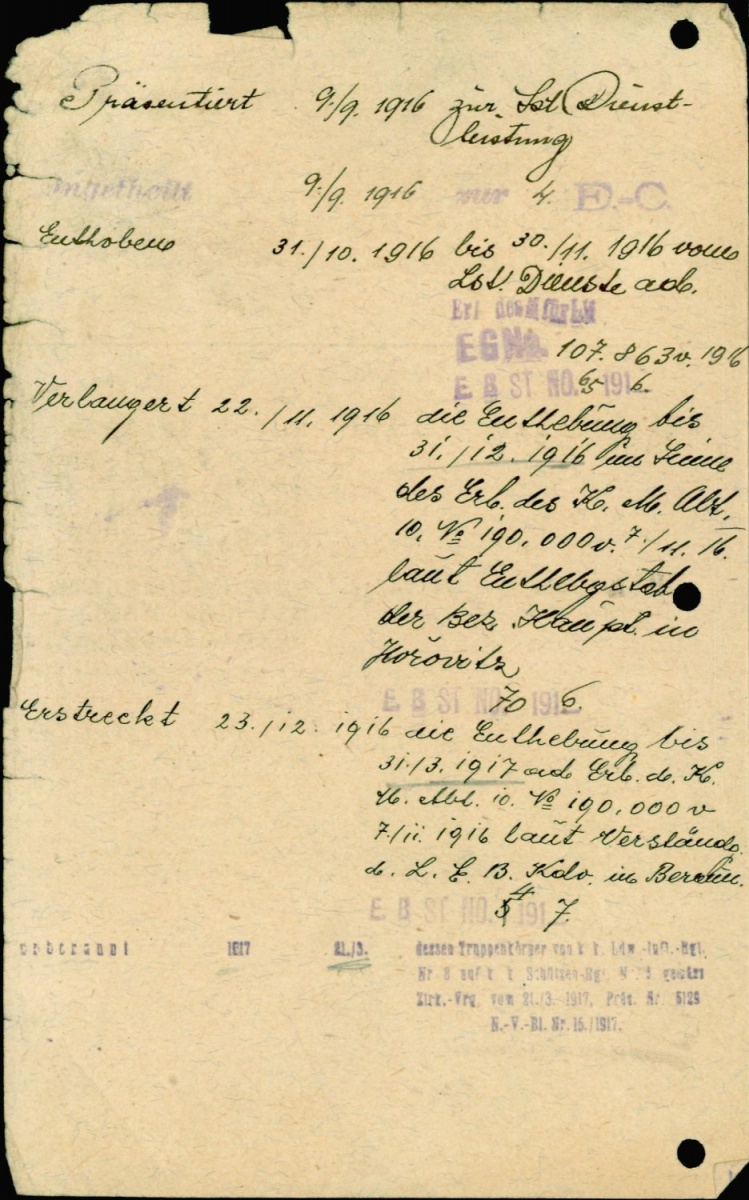 Präsentiert 9./9. 1916 zur Lst. Dienst-
leistung
Eingetheilt 9./9. 1916 zur 4. E.-C.
Enthoben 31./10. 1916 bis 30./11. 1916 vom
Lst. Dienste ad.
Erl. des M. für LV.
EGNo. 107.863 v. 1916
E B ST NO. 65 1916.
Verlangert 22./11. 1916 die Enthebung bis
31./12. 1916 im Sinne
des Erl. des K. M. Abt.
10. No 190.000 v. 7./11. 16.
laut Enthebgstab
der Bez. Haupt. in
Hořovitz
E B ST NO. 70 1916.
Erstreckt 23./12. 1916 die Enthebung bis
31./3. 1917 ad Erl. d. K.
M. Abt. 10. No 190.000 v
7./11. 1916 laut Verständg.
d. L. E. B. Kdo. in Beraun.
E B ST NO. 1917.
1917 21./3. dessen Truppenkörper von k. k. Ldw.-Inft.-Rgt.
Nr. 8 auf k. k. Schützen-Rgt. Nr. 8 gemäss
Zirk.-Vrg. vom 21./3. 1917, Präs. Nr. 5129
N.-V.-Bl. Nr. 15./1917.